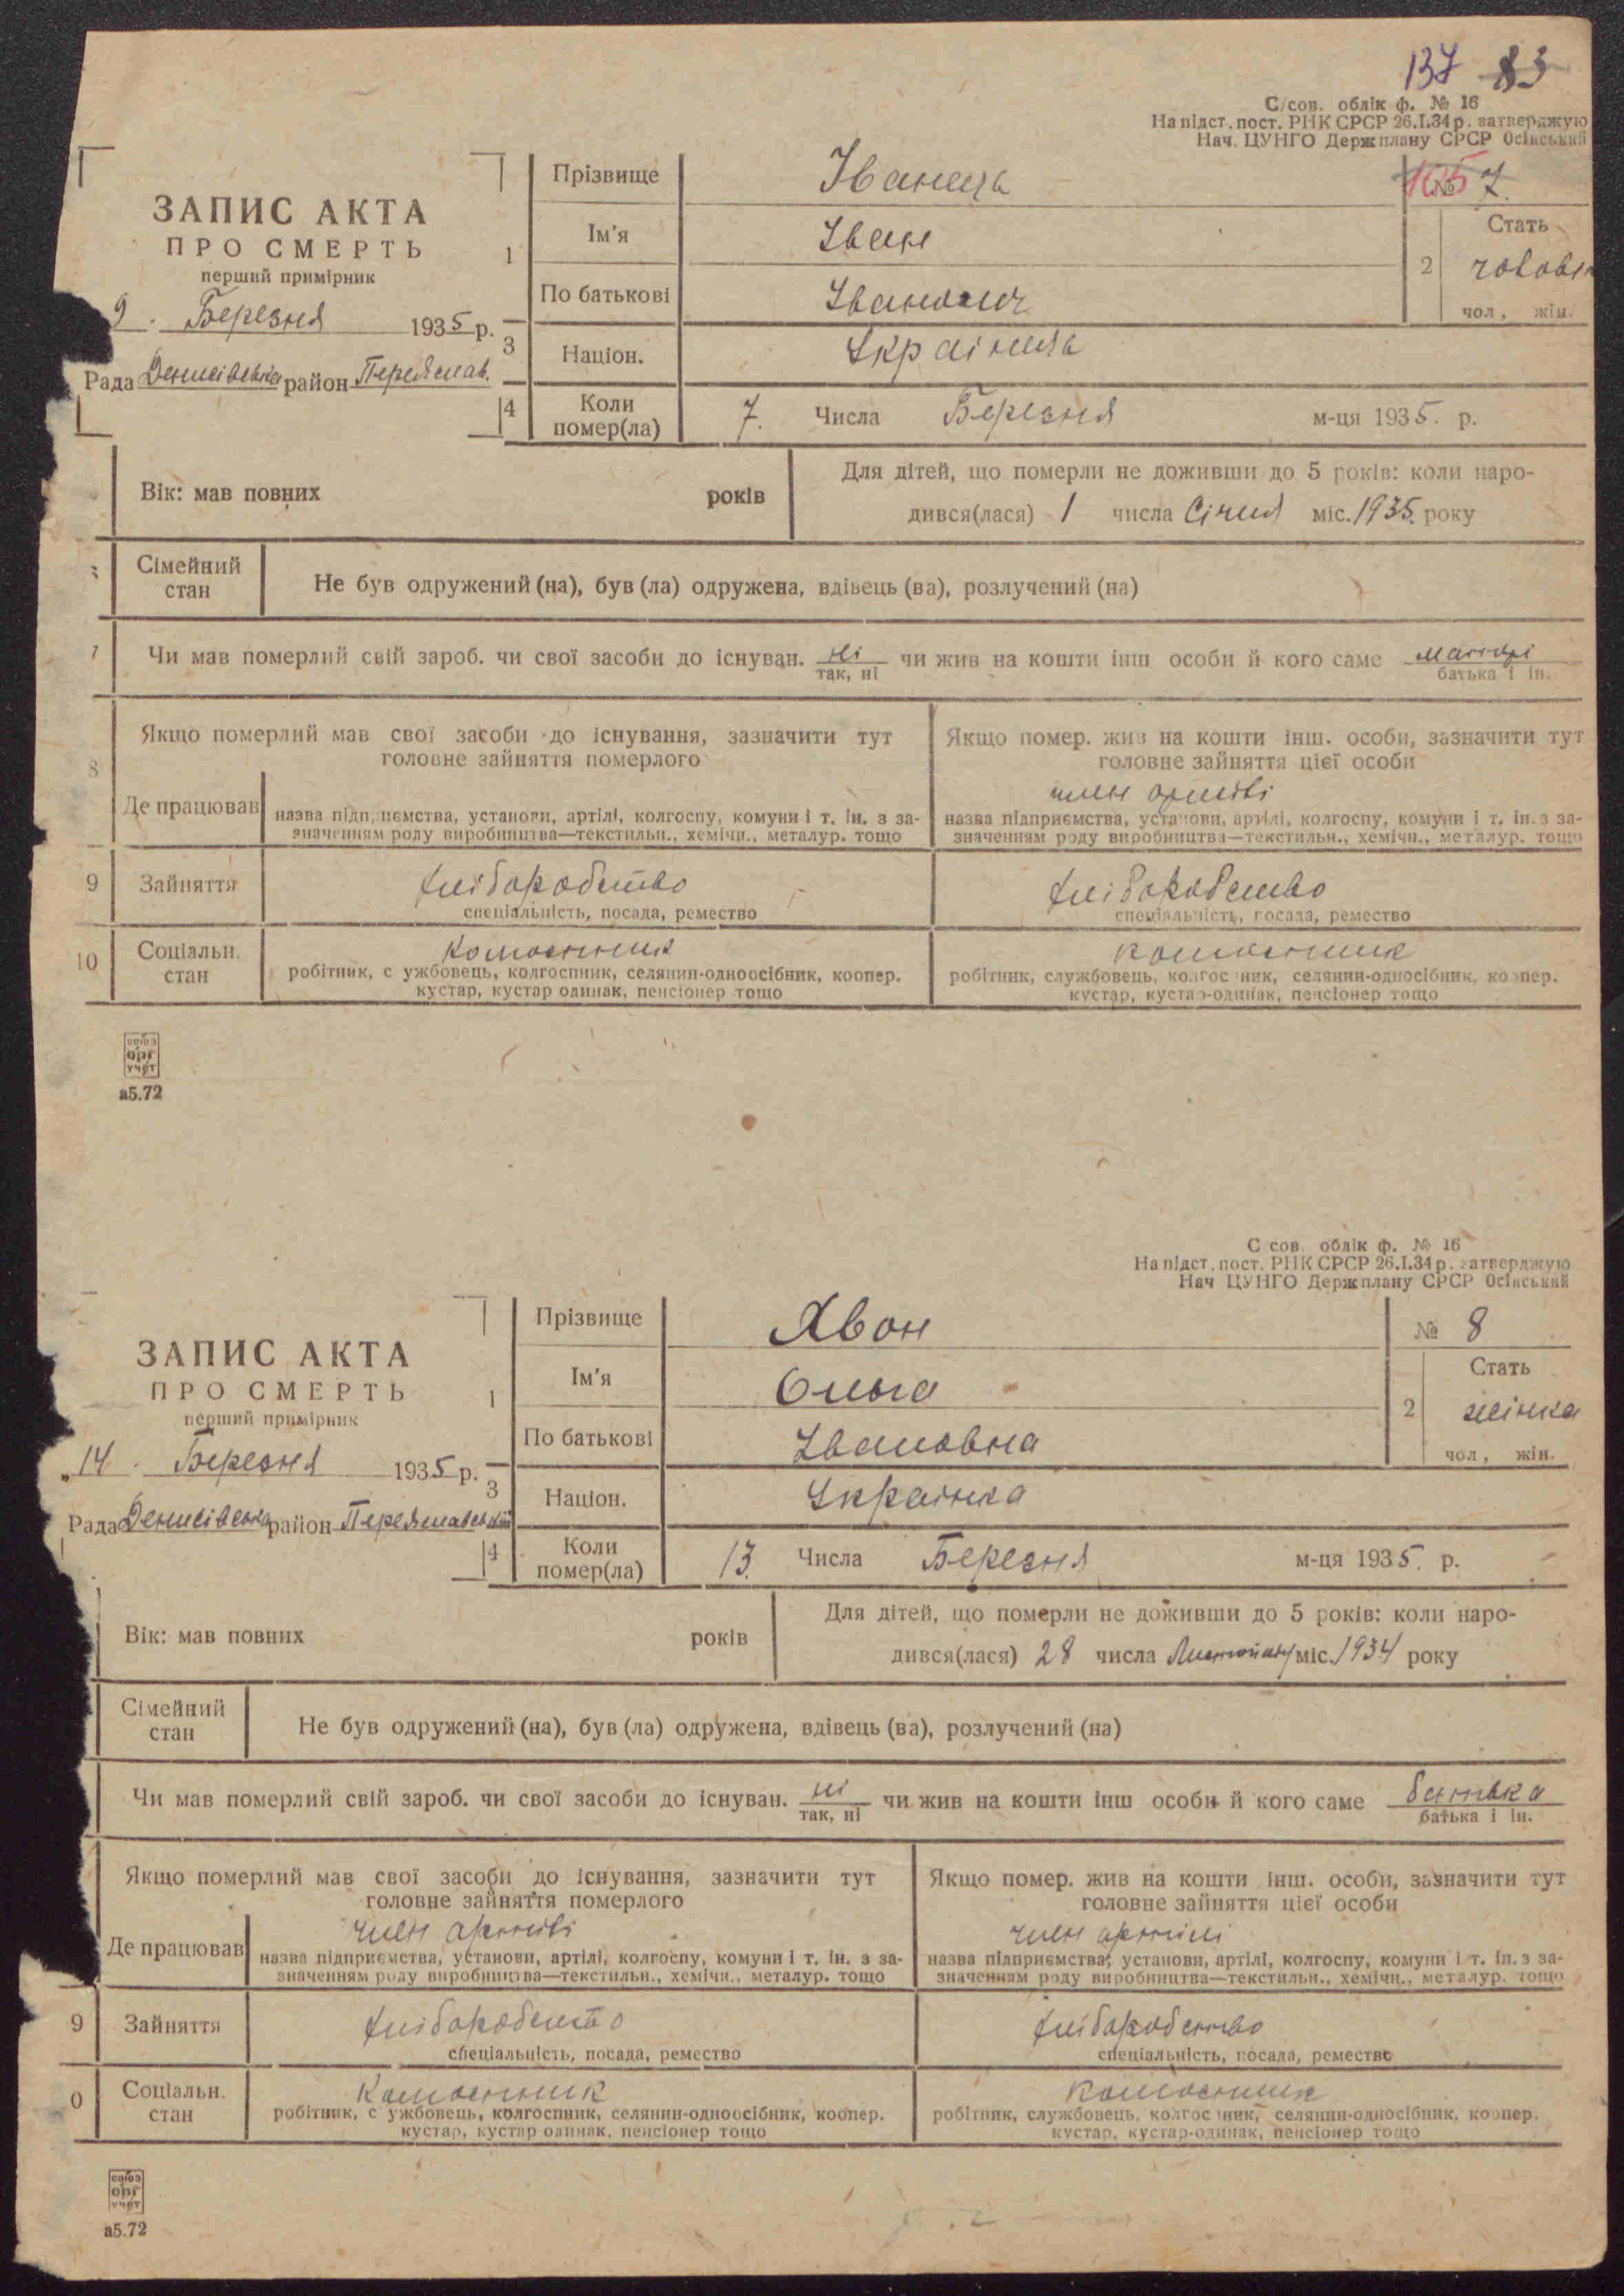 137 83
С/сов. облік ф. № 16
На підст. пост. РНК СРСР 26.I.34 р. затверджую
Нач. ЦУНГО Держплану СРСР Осінський
ЗАПИС АКТА
ПРО СМЕРТЬ
перший примірник
9. Березня 1935 р.
Рада Денисівська район Переяслав.
1 Прізвище Іванець
№ 7.
Ім'я Іван
По батькові Іванович
2 Стать
чоловік
чол., жін.
3 Націон. Українець
4 Коли помер(ла) 7. Числа Березня м-ця 1935. р.
Вік: мав повних років
Для дітей, що померли не доживши до 5 років: коли наро-
дився(лася) 1 числа Січня міс. 1935. року
Сімейний стан
Не був одружений (на), був (ла) одружена, вдівець (ва), розлучений (на)
7 Чи мав померлий свій зароб. чи свої засоби до існуван. ні чи жив на кошти інш особи й кого саме матері
так, ні батька і ін.
8 Якщо померлий мав свої засоби до існування, зазначити тут
головне зайняття померлого
Якщо помер. жив на кошти інш. особи, зазначити тут
головне зайняття цієї особи
член артілі
Де працював
назва підприємства, установи, артілі, колгоспу, комуни і т. ін. з за-
значенням роду виробництва—текстильн., хемічн., металур. тощо
назва підприємства, установи, артілі, колгоспу, комуни і т. ін. з за-
значенням роду виробництва—текстильн., хемічн., металур. тощо
9 Зайняття хліборобство хліборобство
спеціальність, посада, ремество спеціальність, посада, ремество
10 Соціальн. стан колгоспник колгоспник
робітник, службовець, колгоспник, селянин-одноосібник, коопер.
кустар, кустар одинак, пенсіонер тощо
робітник, службовець, колгоспник, селянин-односібник, коопер.
кустар, кустар-одинак, пенсіонер тощо
союз
орг
учет
а5.72
С сов. облік ф. № 16
На підст. пост. РНК СРСР 26.I.34 р. затверджую
Нач ЦУНГО Держплану СРСР Осінський
ЗАПИС АКТА
ПРО СМЕРТЬ
перший примірник
„14. Березня 1935 р.
Рада Денисівська район Переяславський
1 Прізвище Явон
№ 8
Ім'я Ольга
По батькові Івановна
2 Стать
жінка
чол., жін.
3 Націон. Українка
4 Коли помер(ла) 13. Числа Березня м-ця 1935. р.
Вік: мав повних років
Для дітей, що померли не доживши до 5 років: коли наро-
дився(лася) 28 числа Листопаду міс. 1934 року
Сімейний стан
Не був одружений (на), був (ла) одружена, вдівець (ва), розлучений (на)
Чи мав померлий свій зароб. чи свої засоби до існуван. ні чи жив на кошти інш особи й кого саме батька
так, ні батька і ін.
Якщо померлий мав свої засоби до існування, зазначити тут
головне зайняття померлого
Якщо помер. жив на кошти інш. особи, зазначити тут
головне зайняття цієї особи
член артілі член артілі
Де працював
назва підприємства, установи, артілі, колгоспу, комуни і т. ін. з за-
значенням роду виробництва—текстильн., хемічн., металур. тощо
назва підприємства, установи, артілі, колгоспу, комуни і т. ін. з за-
значенням роду виробництва—текстильн., хемічн., металур. тощо
9 Зайняття хліборобство хліборобство
спеціальність, посада, ремество спеціальність, посада, ремество
0 Соціальн. стан колгоспник колгоспник
робітник, службовець, колгоспник, селянин-одноосібник, коопер.
кустар, кустар одинак, пенсіонер тощо
робітник, службовець, колгоспник, селянин-односібник, коопер.
кустар, кустар-одинак, пенсіонер тощо
союз
орг
учет
а5.72